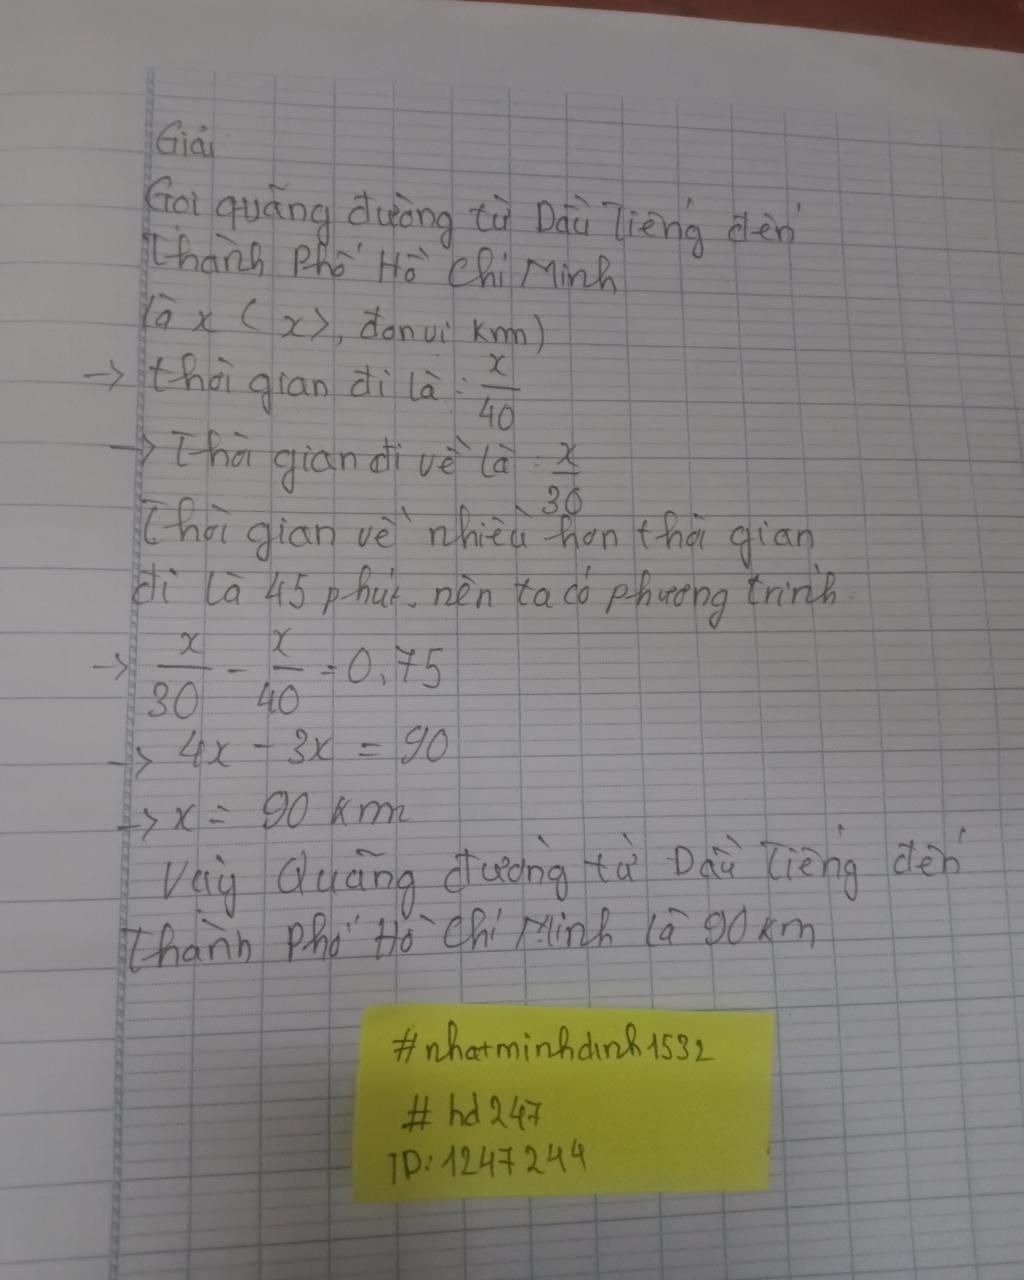 Giải
Gọi quãng đường từ Dầu Tiếng đến
Thành Phố Hồ Chí Minh
là x ( x>, đơn vị km)
→ thời gian đi là : x/40
→ Thời gian đi về là : x/30
Thời gian về nhiều hơn thời gian
đi là 45 phút. nên ta có phương trình.
→ x/30 - x/40 = 0,75
→ 4x - 3x = 90
→ x = 90 km
Vậy Quãng đường từ Dầu Tiếng đến
Thành Phố Hồ Chí Minh là 90 km
#nhatminhdinh1532
# hd247
ID: 1247244